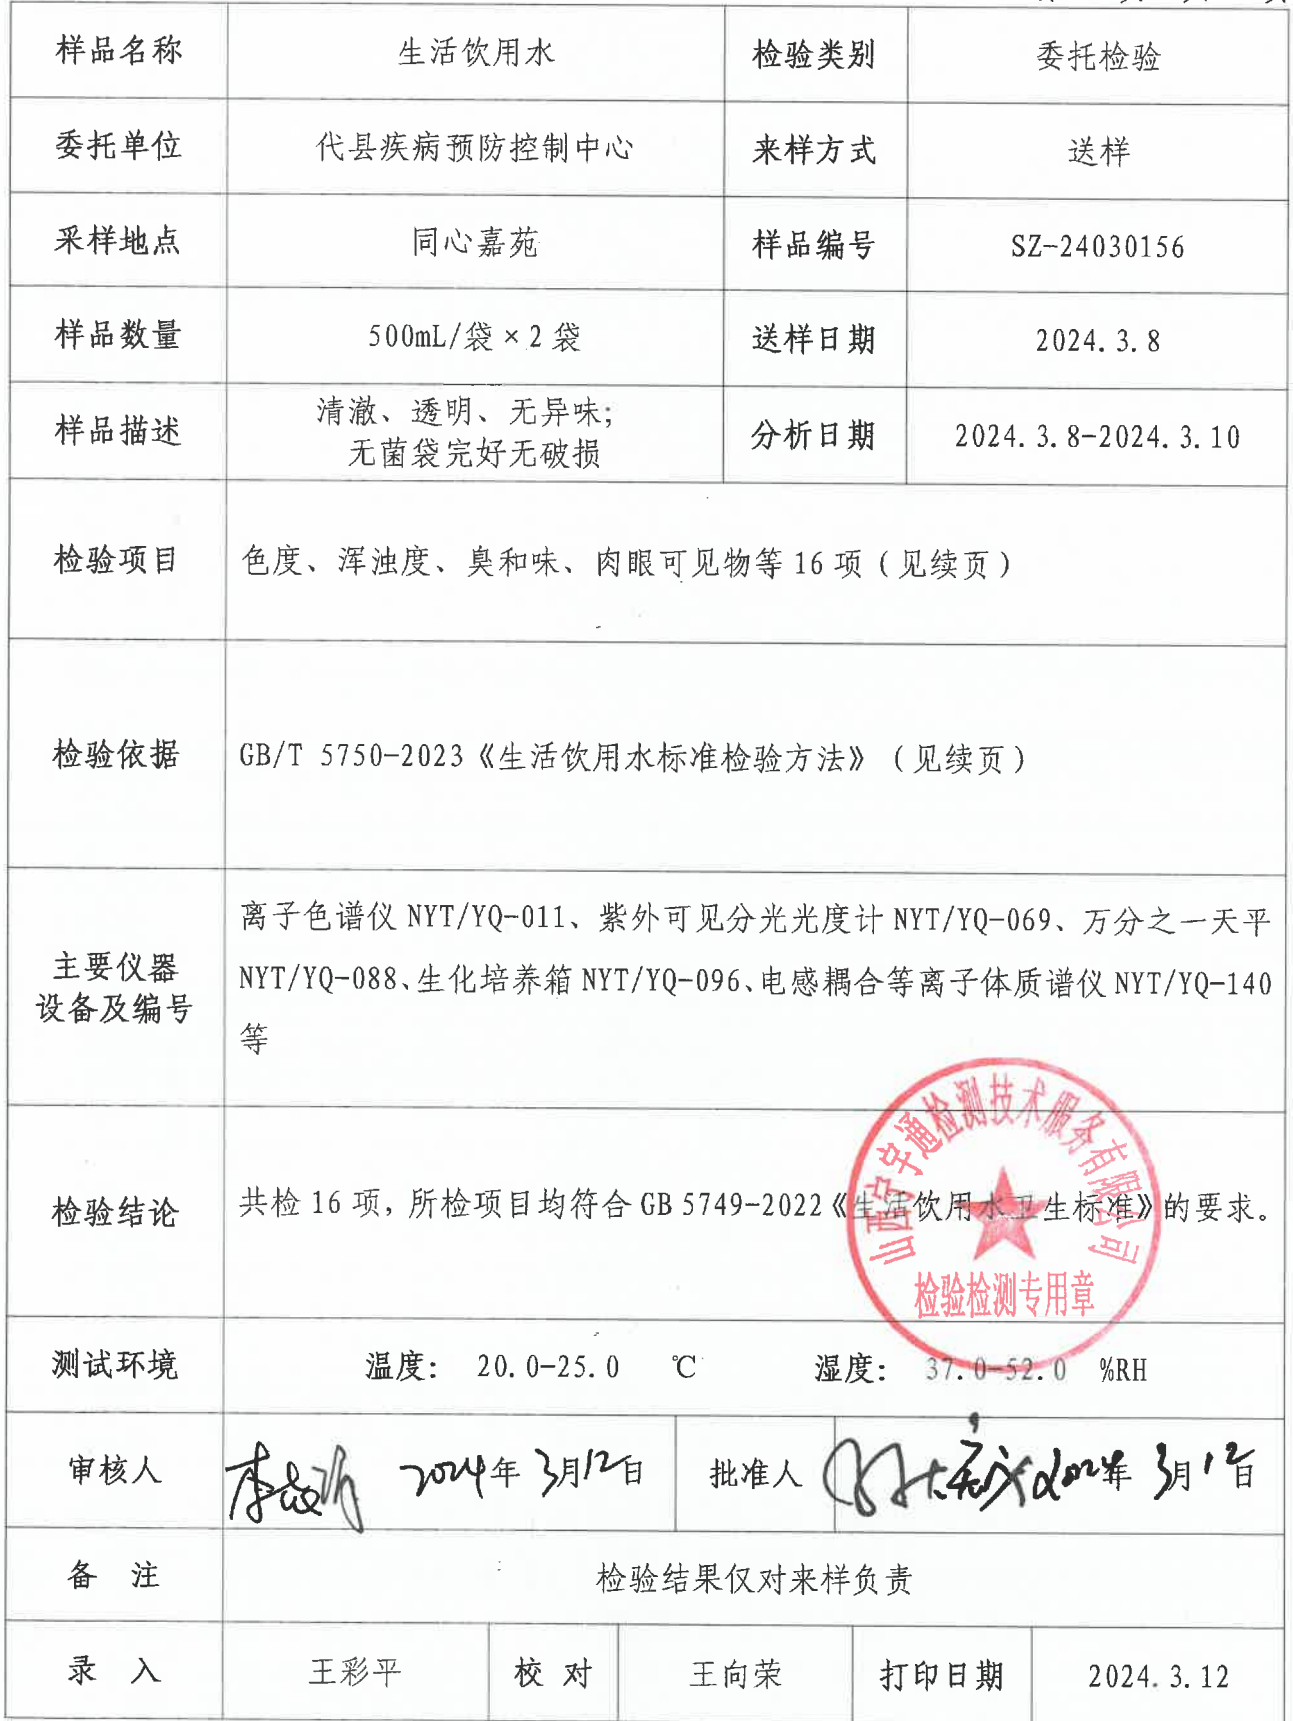 样品名称 生活饮用水 检验类别 委托检验
委托单位 代县疾病预防控制中心 来样方式 送样
采样地点 同心嘉苑 样品编号 SZ-24030156
样品数量 500mL/袋×2 袋 送样日期 2024.3.8
样品描述 清澈、透明、无异味；
无菌袋完好无破损 分析日期 2024.3.8-2024.3.10
检验项目 色度、浑浊度、臭和味、肉眼可见物等 16 项（见续页）
检验依据 GB/T 5750-2023《生活饮用水标准检验方法》（见续页）
主要仪器
设备及编号
离子色谱仪 NYT/YQ-011、紫外可见分光光度计 NYT/YQ-069、万分之一天平
NYT/YQ-088、生化培养箱 NYT/YQ-096、电感耦合等离子体质谱仪 NYT/YQ-140
等
检验结论 共检 16 项，所检项目均符合 GB 5749-2022《生活饮用水卫生标准》的要求。
山西宁宇通检测技术服务有限公司
检验检测专用章
测试环境 温度： 20.0-25.0 ℃ 湿度： 37.0-52.0 %RH
审核人 2024年 3月12日 批准人 2024年 3月12日
备 注 检验结果仅对来样负责
录 入 王彩平 校 对 王向荣 打印日期 2024.3.12